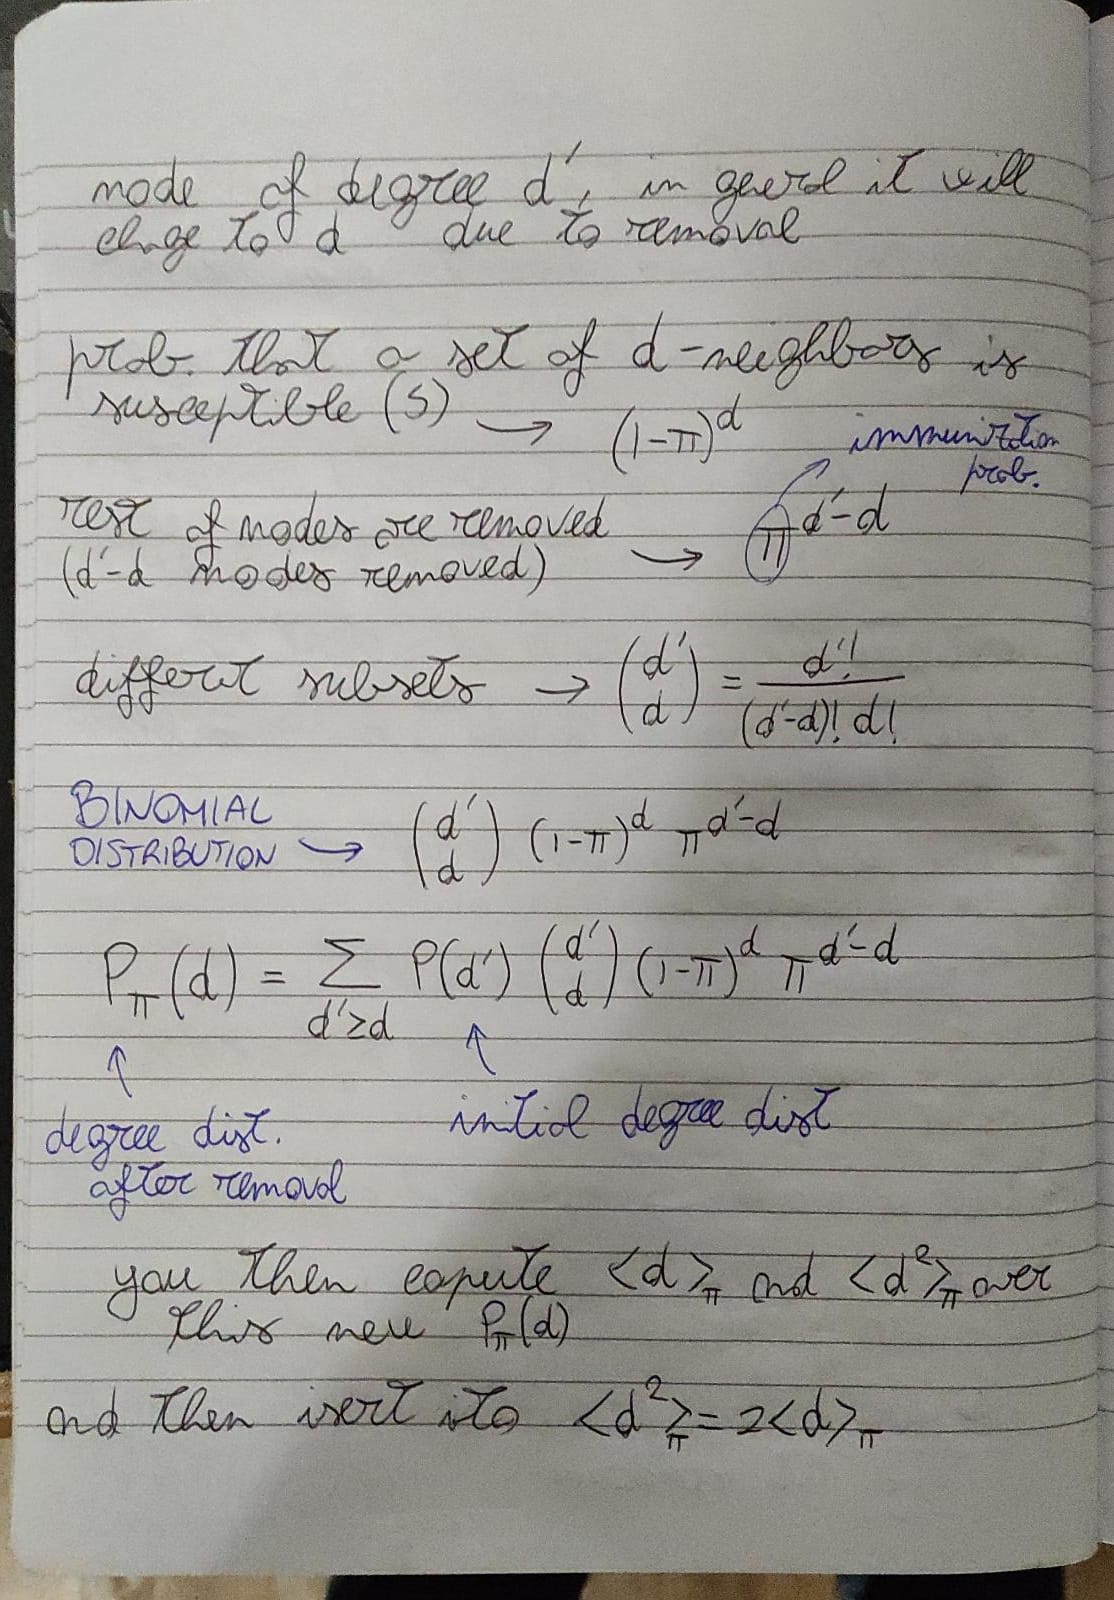 node of degree d', in generl it will
chnge to d due to removal
prob. that a set of d-neighbors is
susceptible (S) → (1-π)^d
immuniztion
prob.
rest of nodes are removed
(d'-d nodes removed) → π^{d'-d}
differnt subsets → (d' d) = d'! / (d'-d)! d!
BINOMIAL
DISTRIBUTION → (d' d) (1-π)^d π^{d'-d}
P_π(d) = Σ_{d'≥d} P(d') (d' d) (1-π)^d π^{d'-d}
↑ ↑
degree dist. initial degree dist
after removal
you then copute <d>_π and <d²>_π over
this new P_π(d)
and then isert ito <d²>_π = 2<d>_π